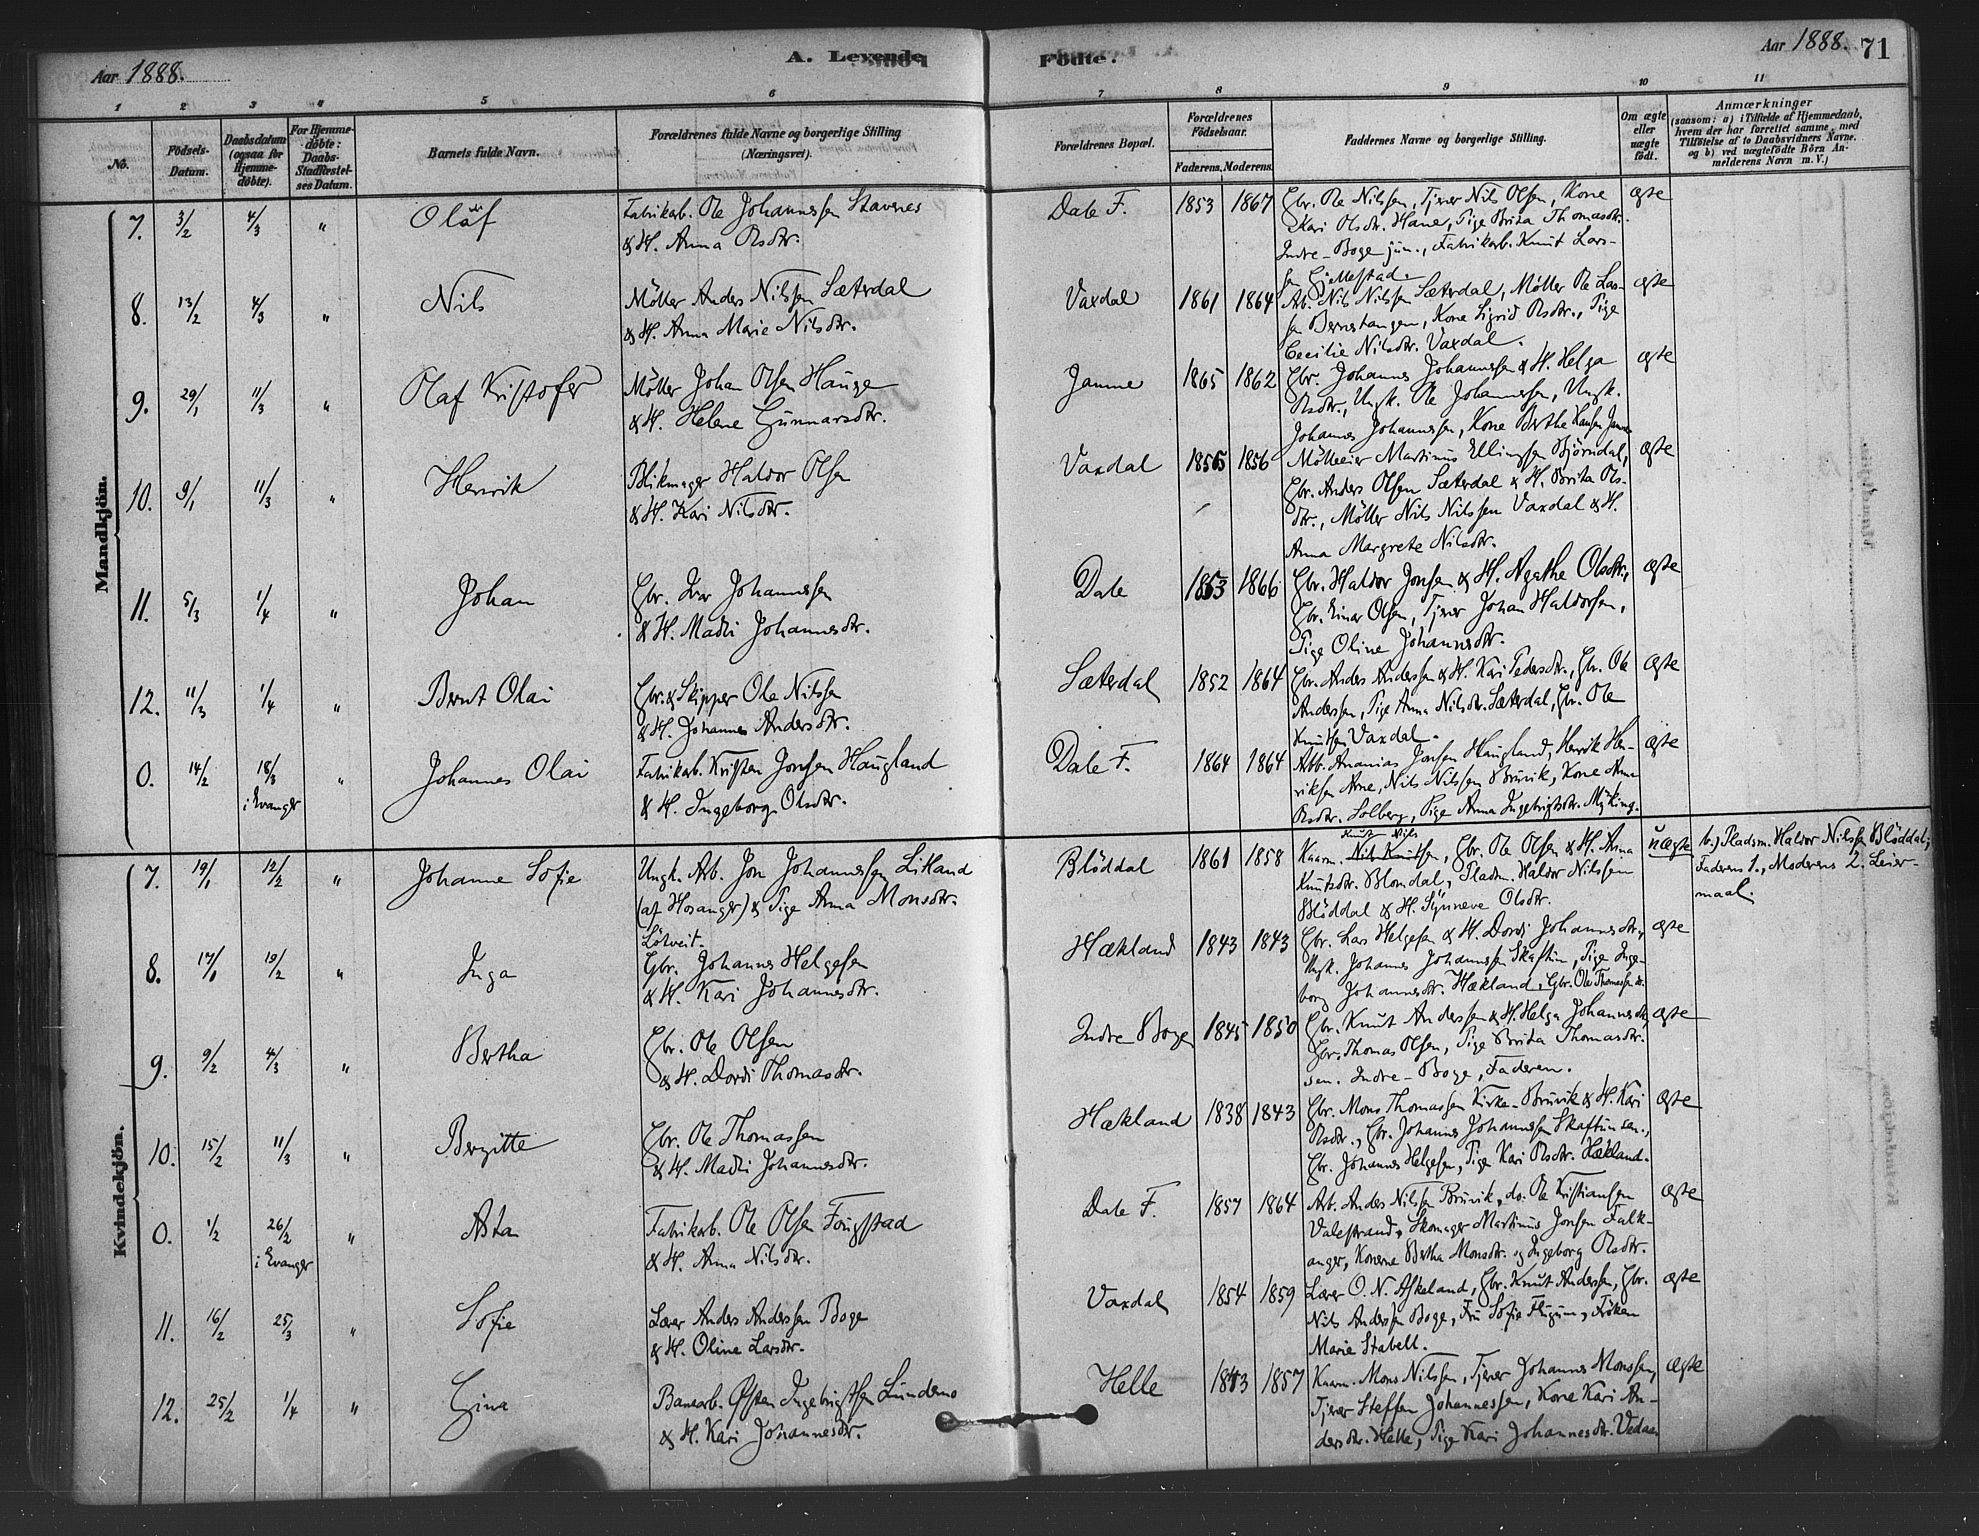 Aar 1888.
A. Levende
Födte.
Aar 1888. 71
1 2 3 4 5 6 7 8 9 10 11
No.
Födsels-Datum.
Daabsdatum (ogsaa for Hjemme-döbte).
For Hjemme-döbte: Daabs-Stadfæstelses Datum.
Barnets fulde Navn.
Forældrenes fulde Navne og borgerlige Stilling (Næringsvei).
Forældrenes Bopæl.
Forældrenes Födselsaar.
Faderens. Moderens.
Faddernes Navne og borgerlige Stilling.
Om ægte eller uægte födt.
Anmærkninger
(saasom: a) i Tilfælde af Hjemmedaab, hvem der har forrettet samme, med Tilföielse af to Daabsvidners Navne, og b) ved uægtefödte Börn Anmelderens Navn m. V.)
Mandkjön.
7. 3/2 4/3 " Olaf
Fabrikarb. Ole Johannessen Stavenes
& H. Anna Olsdtr.
Dale F. 1853 1867
Gbr. Ole Nilssen, Tjener Nils Olsen, Kone
Kari Olsdtr. Hane, Pige Brita Thomasdtr.
Indre-Boge jun., Fabrikarb. Knut Lars-
sen Gjellestad.
ægte
8. 13/2 4/3 " Nils
Möller Anders Nilssen Sæterdal
& H. Anna Marie Nilsdtr.
Vaxdal 1861 1864
Arb. Nils Nilssen Sæterdal, Möller Ole Lars-
sen Bernestangen, Kone Sigrid Olsdtr., Pige
Cecilie Nilsdtr. Vaxdal.
ægte
9. 29/1 11/3 " Olaf Kristofer
Möller Johan Olsen Hauge
& H. Helene Gunnarsdtr.
Jamne 1865 1862
Gbr. Johannes Johannessen & H. Helga
Olsdtr., Ungk. Ole Johannessen, Ungk.
Johannes Johannessen, Kone Berthe Hansen Jamne
ægte
10. 9/1 11/3 " Henrik
Blikmager Haldor Olsen
& H. Kari Nilsdtr.
Vaxdal 1855 1856
Mölleeier Martinus Ellingsen Björndal,
Gbr. Anders Olsen Sæterdal & H. Brita Ols-
dtr., Möller Nils Nilssen Vaxdal & H.
Anna Margrete Nilsdtr.
ægte
11. 5/3 1/4 " Johan
Gbr. Ivar Johannessen
& H. Madli Johannesdtr.
Dale 1853 1866
Gbr. Haldor Jonsen & H. Agathe Olsdtr.,
Gbr. Einar Olsen, Tjener Johan Haldorsen,
Pige Oline Johannesdtr.
ægte
12. 11/3 1/4 " Bernt Olai
Gbr. & Skipper Ole Nilssen
& H. Johannes Andersdtr.
Sæterdal 1852 1864
Gbr. Anders Anderssen & H. Kari Pedersdtr., Gbr. Ole
Anderssen, Pige Anna Nilsdtr. Sæterdal, Gbr. Ole
Knutsen Vaxdal.
ægte
0. 14/2 18/3 " Johannes Olai
i Evanger
Fabrikarb. Kristen Jonsen Haugland
& H. Ingeborg Olsdtr.
Dale F. 1864 1864
Arb. Ananias Jonsen Haugland, Henrik Hen-
riksen Arne, Nils Nilssen Bruvik, Kone Anna
Olsdtr. Solberg, Pige Anna Ingebrigtsdtr. Myking.
ægte
Kvindekjön.
7. 19/1 12/2 " Johanne Sofie
Ungk. Arb. Jon Johannessen Litland
(af Hosanger) & Pige Anna Monsdtr.
Lötveit.
Blöddal 1861 1858
Knut Nils
Kaarm. Nils Knutsen, Gbr. Ole Olsen & H. Anna
Knutsdtr. Blomdal, Pladsm. Haldor Nilssen
Blöddal & H. Synneve Olsdtr.
uægte
b.) Pladsm. Haldor Nilssen Blöddal;
Faderens 1., Moderens 2. Leier-
maal.
8. 17/1 19/2 " Inga
Gbr. Johannes Helgesen
& H. Kari Johannesdtr.
Hækland 1843 1843
Gbr. Lars Helgesen & H. Dordi Johannesdtr.,
Ungk. Johannes Johannessen Skaftun, Pige Inge-
borg Johannesdtr. Hækland, Gbr. Ole Thomassen ib.
ægte
9. 9/2 4/3 " Bertha
Gbr. Ole Olsen
& H. Dordi Thomasdtr.
Indre Boge 1845 1850
Gbr. Knut Anderssen & H. Helga Johannesdtr,
Gbr. Thomas Olsen, Pige Brita Thomasdtr.
sen. Indre-Boge, Faderen.
ægte
10. 15/2 11/3 " Bergitte
Gbr. Ole Thomassen
& H. Madli Johannesdtr.
Hækland 1838 1843
Gbr. Mons Thomassen Kirke-Bruvik & H. Kari
Olsdtr., Gbr. Johannes Johannessen Skaftun sen.,
Gbr. Johannes Helgesen, Pige Kari Olsdtr. Hækland.
ægte
0. 1/2 26/2 " Asta
i Evanger
Fabrikarb. Ole Olsen Fougstad
& H. Anna Nilsdtr.
Dale F. 1857 1864
Arb. Anders Nilssen Bruvik, do. Ole Kristiansen
Valestrand, Skomager Martinus Jonsen Falk-
anger, Konerne Bertha Monsdtr. og Ingeborg Olsdtr.
ægte
11. 16/2 25/3 " Sofie
Lærer Anders Anderssen Boge
& H. Oline Larsdtr.
Vaxdal 1854 1859
Lærer O. N. Askeland, Gbr. Knut Anderssen, Gbr.
Nils Anderssen Boge, Fru Sofie Flugum, Fröken
Marie Stabell.
ægte
12. 25/2 1/4 " Gina
Banearb. Östen Ingebrigtsen Lundemo
& H. Kari Johannesdtr.
Helle 1843 1857
Kaarm. Mons Nilssen, Tjener Johannes Monssen,
Tjener Steffen Johannessen, Kone Kari An-
dersdtr. Helle, Pige Kari Johannesdtr. Vedaa
ægte